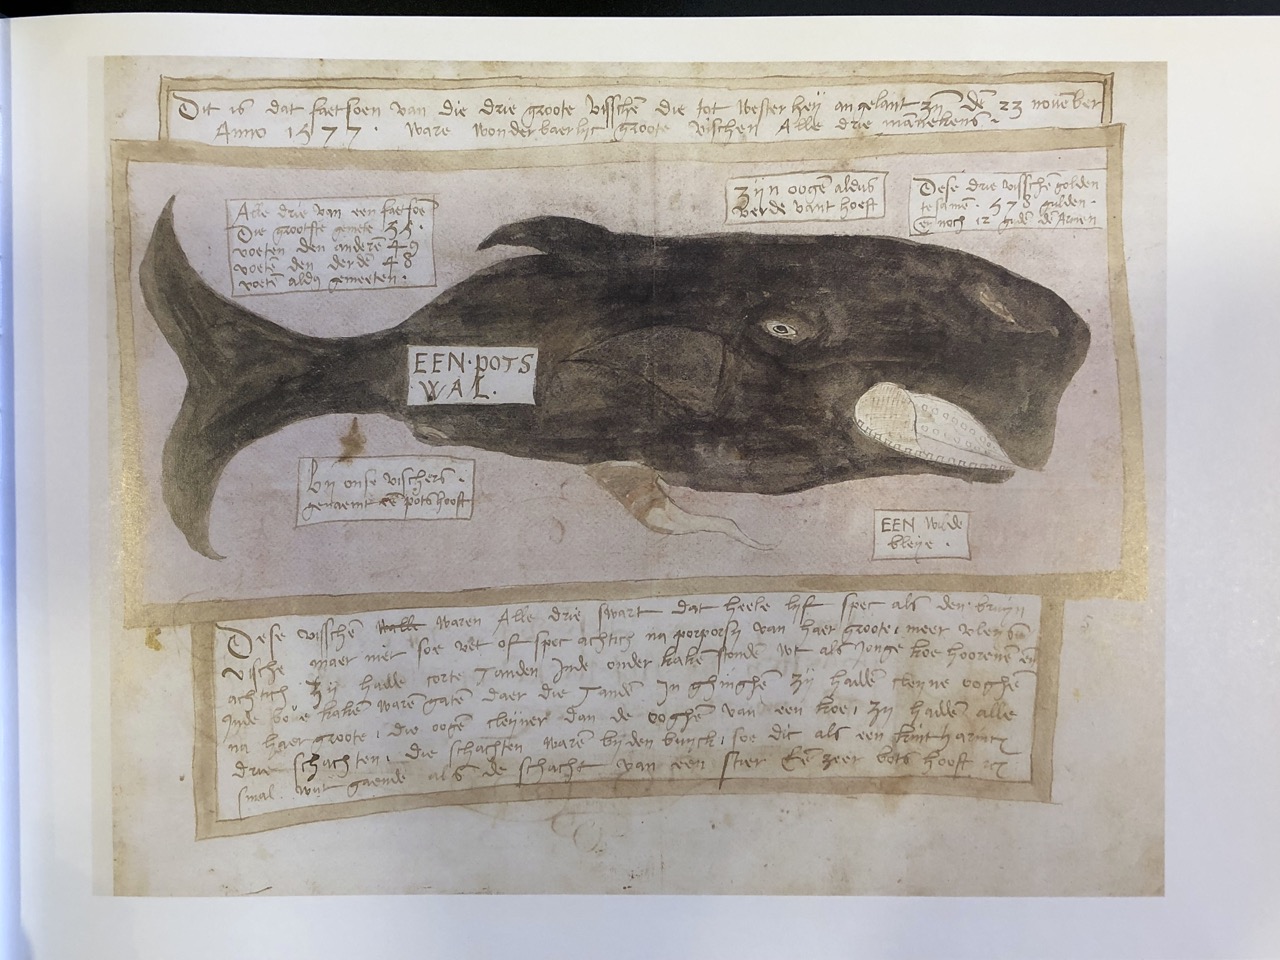 Dit is dat faetsoen van die drie groote visschē die tot westerheÿ angelant zÿn dē 23 november
Anno 1577. ware wonderbaerlÿc groote visschen Alle drie mānekens.
Alle drie van een faetsoē
Die grootste gemete
voeten den andere 49
voetē den derdē 48
voetē aldus gemeeten.
Zÿn oogē aldus
verde vant hoeft
Dese drie visschē golden
tesamē. 578 gulden.
En noch 12 guldē dē Armen
EEN·POTS
WAL.
Bÿ onse visschers.
genaemt eē potshooft
EEN wilde
bleÿe.
Dese visschē walle waren Alle drie swart dat heele lÿf spec als den bruÿn
vische maer niet soe vet of spec achtich na porporsÿ van haer groote, meer vlees
achtich Zÿ hadde corte Tanden Inde onder kakē stondē wt als Jonge koe hoorenen en
Inde bove kakē warē gatē daer die Tandē In ghinghē Zÿ hadē cleyne ooghē
na haer groote, die oogē cleÿner dan de ooghē van een koe, Zÿ haddē alle
drie schachten, die schachten warē bÿden buyck, soe dic als een
smal wÿt gaende als de schacht van een stier Eē zeer bots hooft